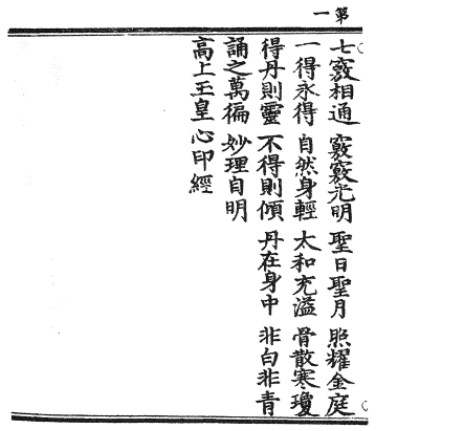 第一
七竅相通竅竅光明聖日聖月照耀金庭
一得永得自然身輕太和充溢骨散寒瓊
得丹則靈不得則傾丹在身中非白非青
誦之萬徧妙理自明
高上玉皇心印經